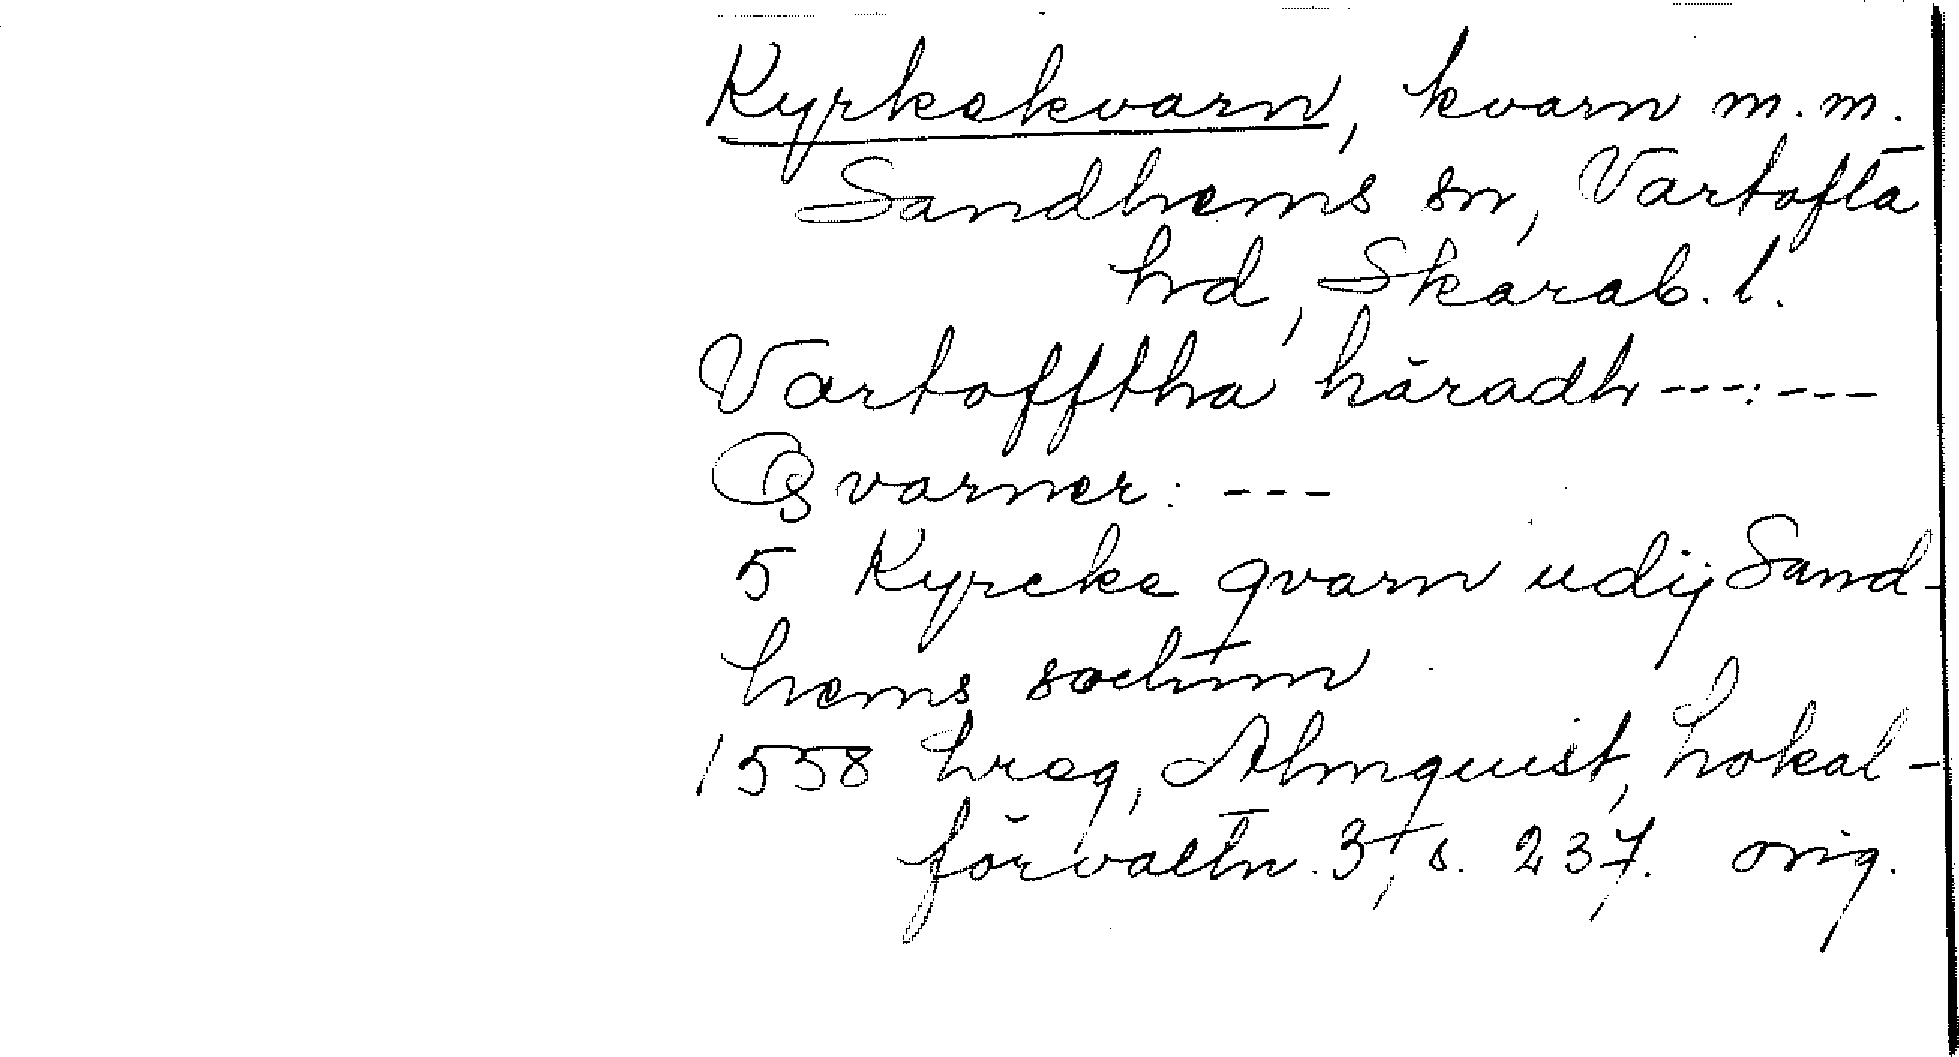 Kyrkekvarn, kvarn m.m.
Sandhems sn, Vartofta
hd, Skarab. l.
Vartofftha häradh ---:---
Qvarner: ---
5 Kyrcke qvarn udij Sand-
hems sochnn
1558 hreg, Almquist, Lokal-
förvaltn. 3, s. 237. orig.